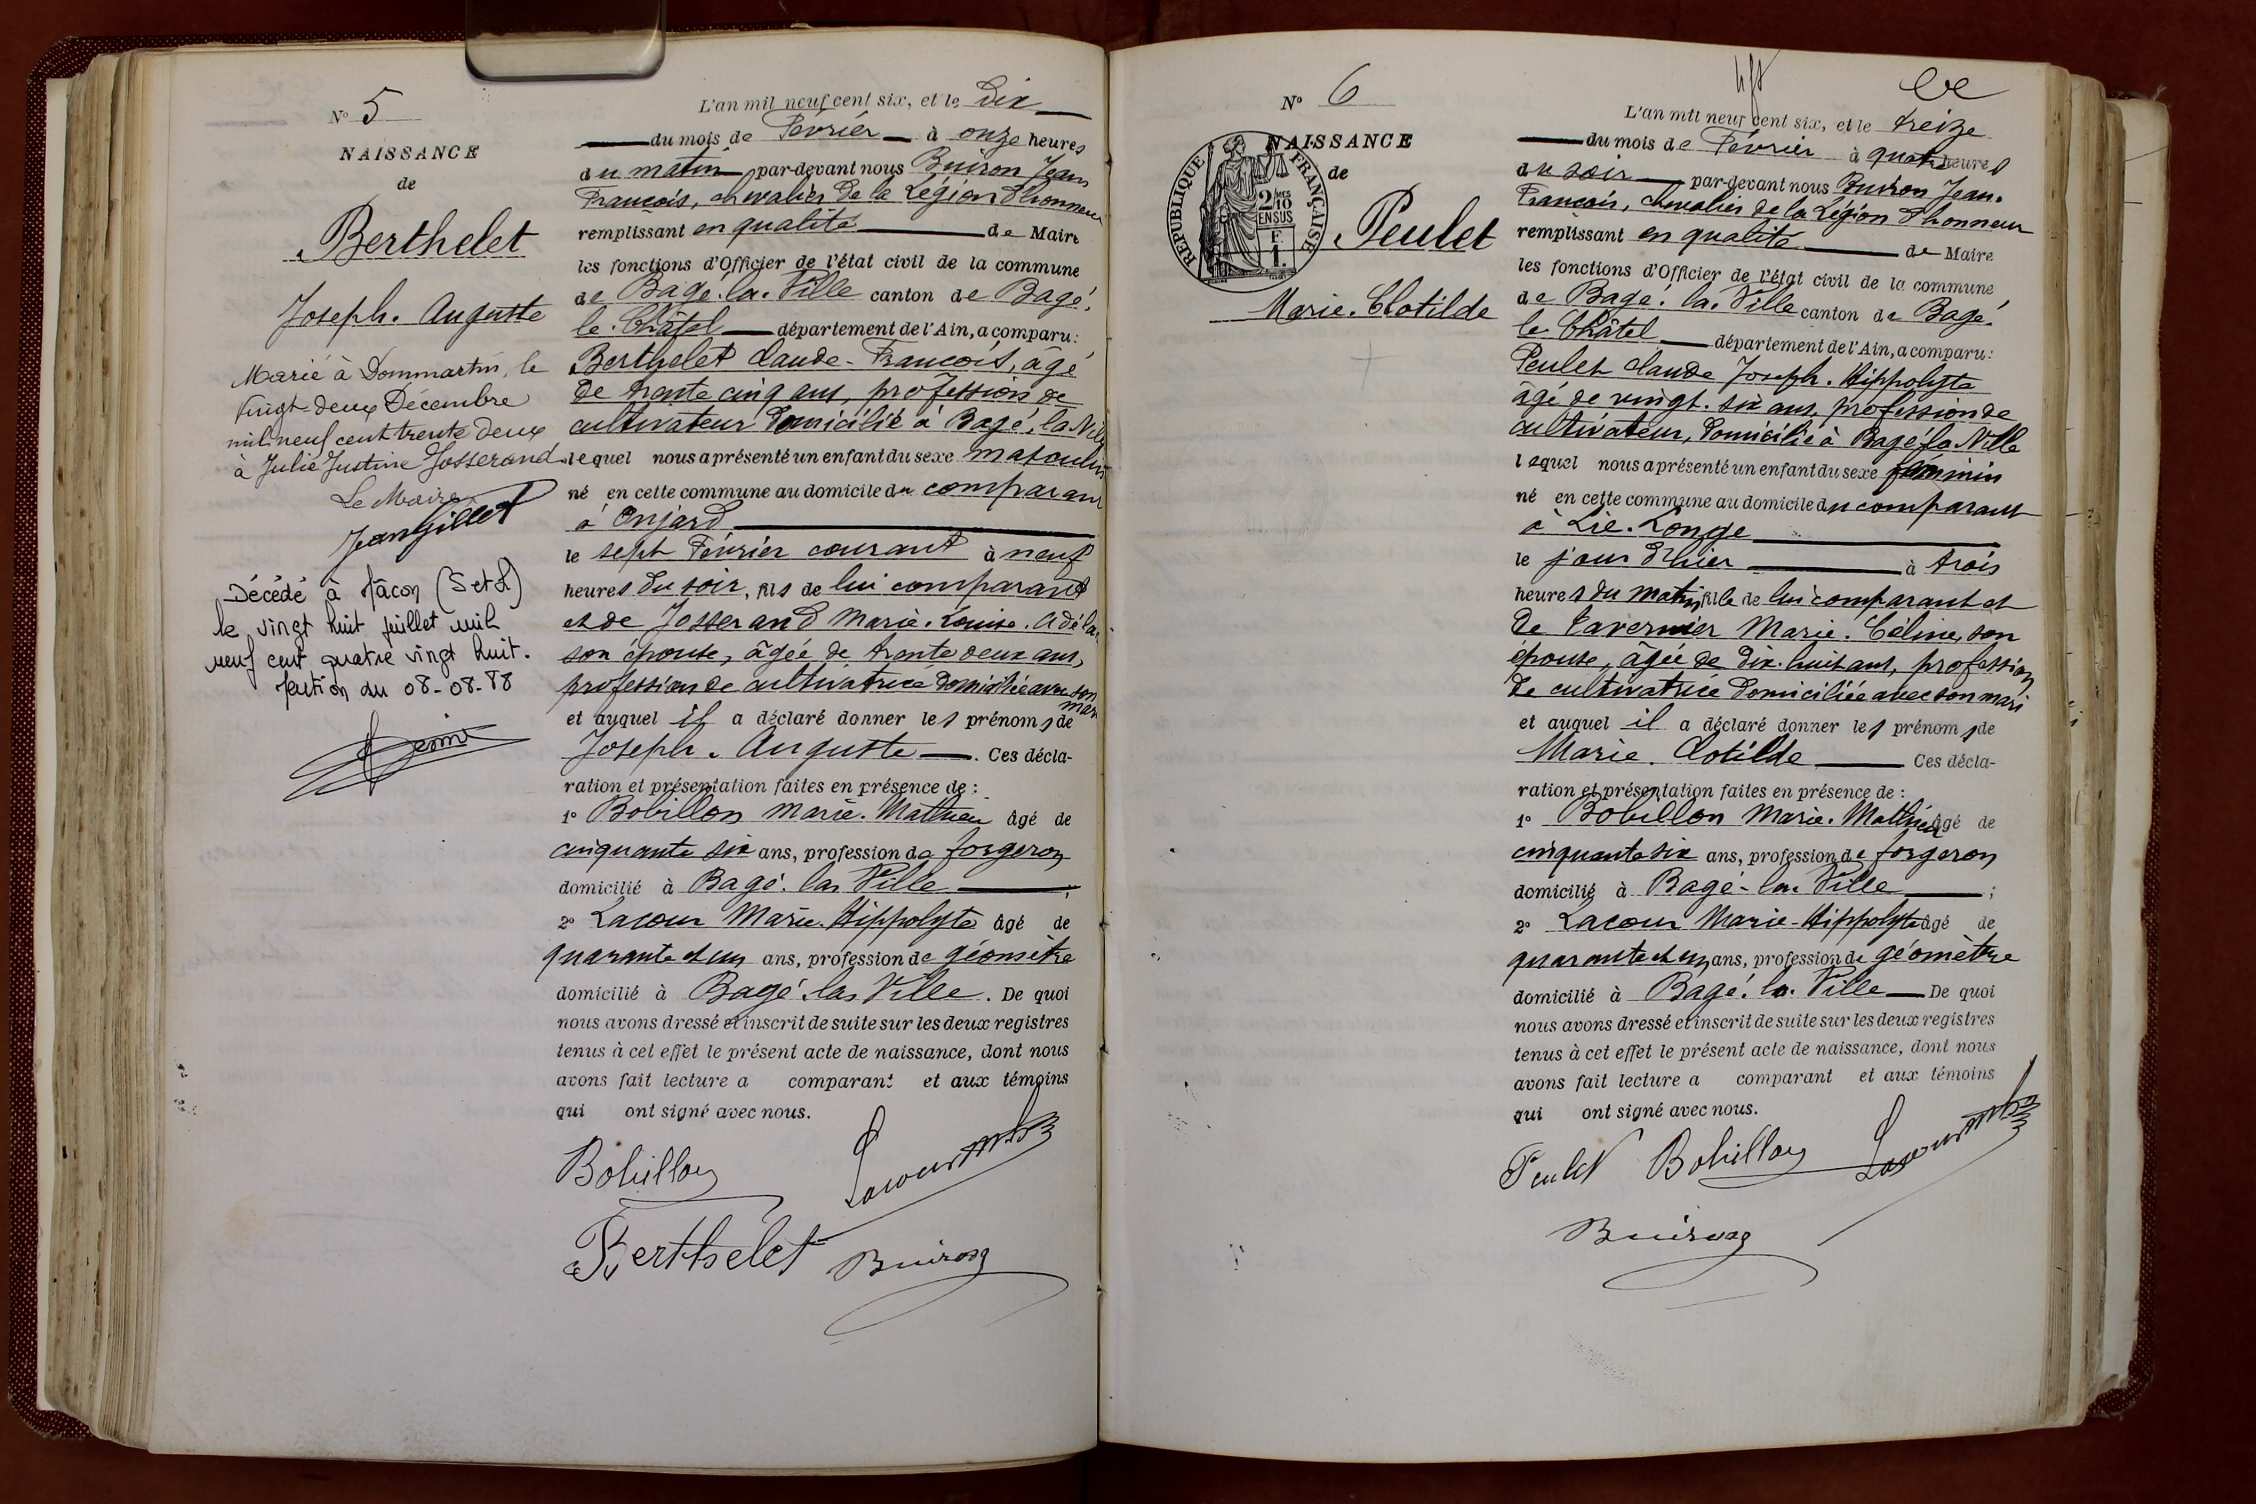 N° 5
NAISSANCE
de
Berthelet
Joseph. Auguste
Marié à Dommartin, le
vingt-deux Décembre
mil neuf cent trente deux
à Julie Justine Josserand
Le Maire
Jean Gillet
Décédé à Mâcon (S et L)
le vingt huit juillet mil
neuf cent quatre vingt huit.
Mention du 08-08-88
L'an mil neuf cent six, et le Dix
du mois de Février à onze heures
du matin par-devant nous Buiron Jean
François, chevalier de la Légion d'honneur
remplissant en qualité de Maire
les fonctions d'Officier de l'état civil de la commune
de Bagé. la. Ville canton de Bagé.
le. Châtel département de l'Ain, a comparu:
Berthelet Claude-François, âgé
de trente cinq ans, profession de
cultivateur domicilié à Bagé. la Ville
lequel nous a présenté un enfant du sexe masculin
né en cette commune au domicile du comparant
à Onjard
le sept Février courant à neuf
heures du soir, fils de lui comparant
et de Josserand Marie. Louise. Adéla
son épouse, âgée de trente deux ans,
profession de cultivatrice domiciliée avec son
mari
et auquel il a déclaré donner les prénoms de
Joseph. Auguste. Ces décla-
ration et présentation faites en présence de :
1° Bobillon Marie. Mathieu âgé de
cinquante six ans, profession de forgeron
domicilié à Bagé. la. Ville ;
2° Lacour Marie. Hippolyte âgé de
quarante et un ans, profession de géomètre
domicilié à Bagé. la. Ville. De quoi
nous avons dressé et inscrit de suite sur les deux registres
tenus à cet effet le présent acte de naissance, dont nous
avons fait lecture a comparant et aux témoins
qui ont signé avec nous.
Bobillon Lacour
Berthelet Buiron
N° 6
NAISSANCE
de
RÉPUBLIQUE FRANÇAISE
2/10
EN SUS
F.
1.
Peulet
Marie. Clotilde
L'an mil neuf cent six, et le treize
du mois de Février à quatre heures
du soir par-devant nous Buiron Jean.
François, chevalier de la Légion d'honneur
remplissant en qualité de Maire
les fonctions d'Officier de l'état civil de la commune
de Bagé. la. Ville canton de Bagé.
le. Châtel département de l'Ain, a comparu:
Peulet Claude Joseph. Hippolyte
âgé de vingt. six ans, profession de
cultivateur, domicilié à Bagé la Ville
lequel nous a présenté un enfant du sexe féminin
né en cette commune au domicile du comparant
à Lie. Longe
le jour d'hier à trois
heures du matin, fille de lui comparant et
de Tavernier Marie. Céline, son
épouse, âgée de dix. huit ans, profession
de cultivatrice domiciliée avec son mari
et auquel il a déclaré donner les prénoms de
Marie. Clotilde Ces décla-
ration et présentation faites en présence de :
1° Bobillon Marie. Mathieu âgé de
cinquante six ans, profession de forgeron
domicilié à Bagé-la. Ville ;
2° Lacour Marie-Hippolyte âgé de
quarante et un ans, profession de géomètre
domicilié à Bagé. la. Ville De quoi
nous avons dressé et inscrit de suite sur les deux registres
tenus à cet effet le présent acte de naissance, dont nous
avons fait lecture a comparant et aux témoins
qui ont signé avec nous.
Peulet Bobillon Lacour
Buiron